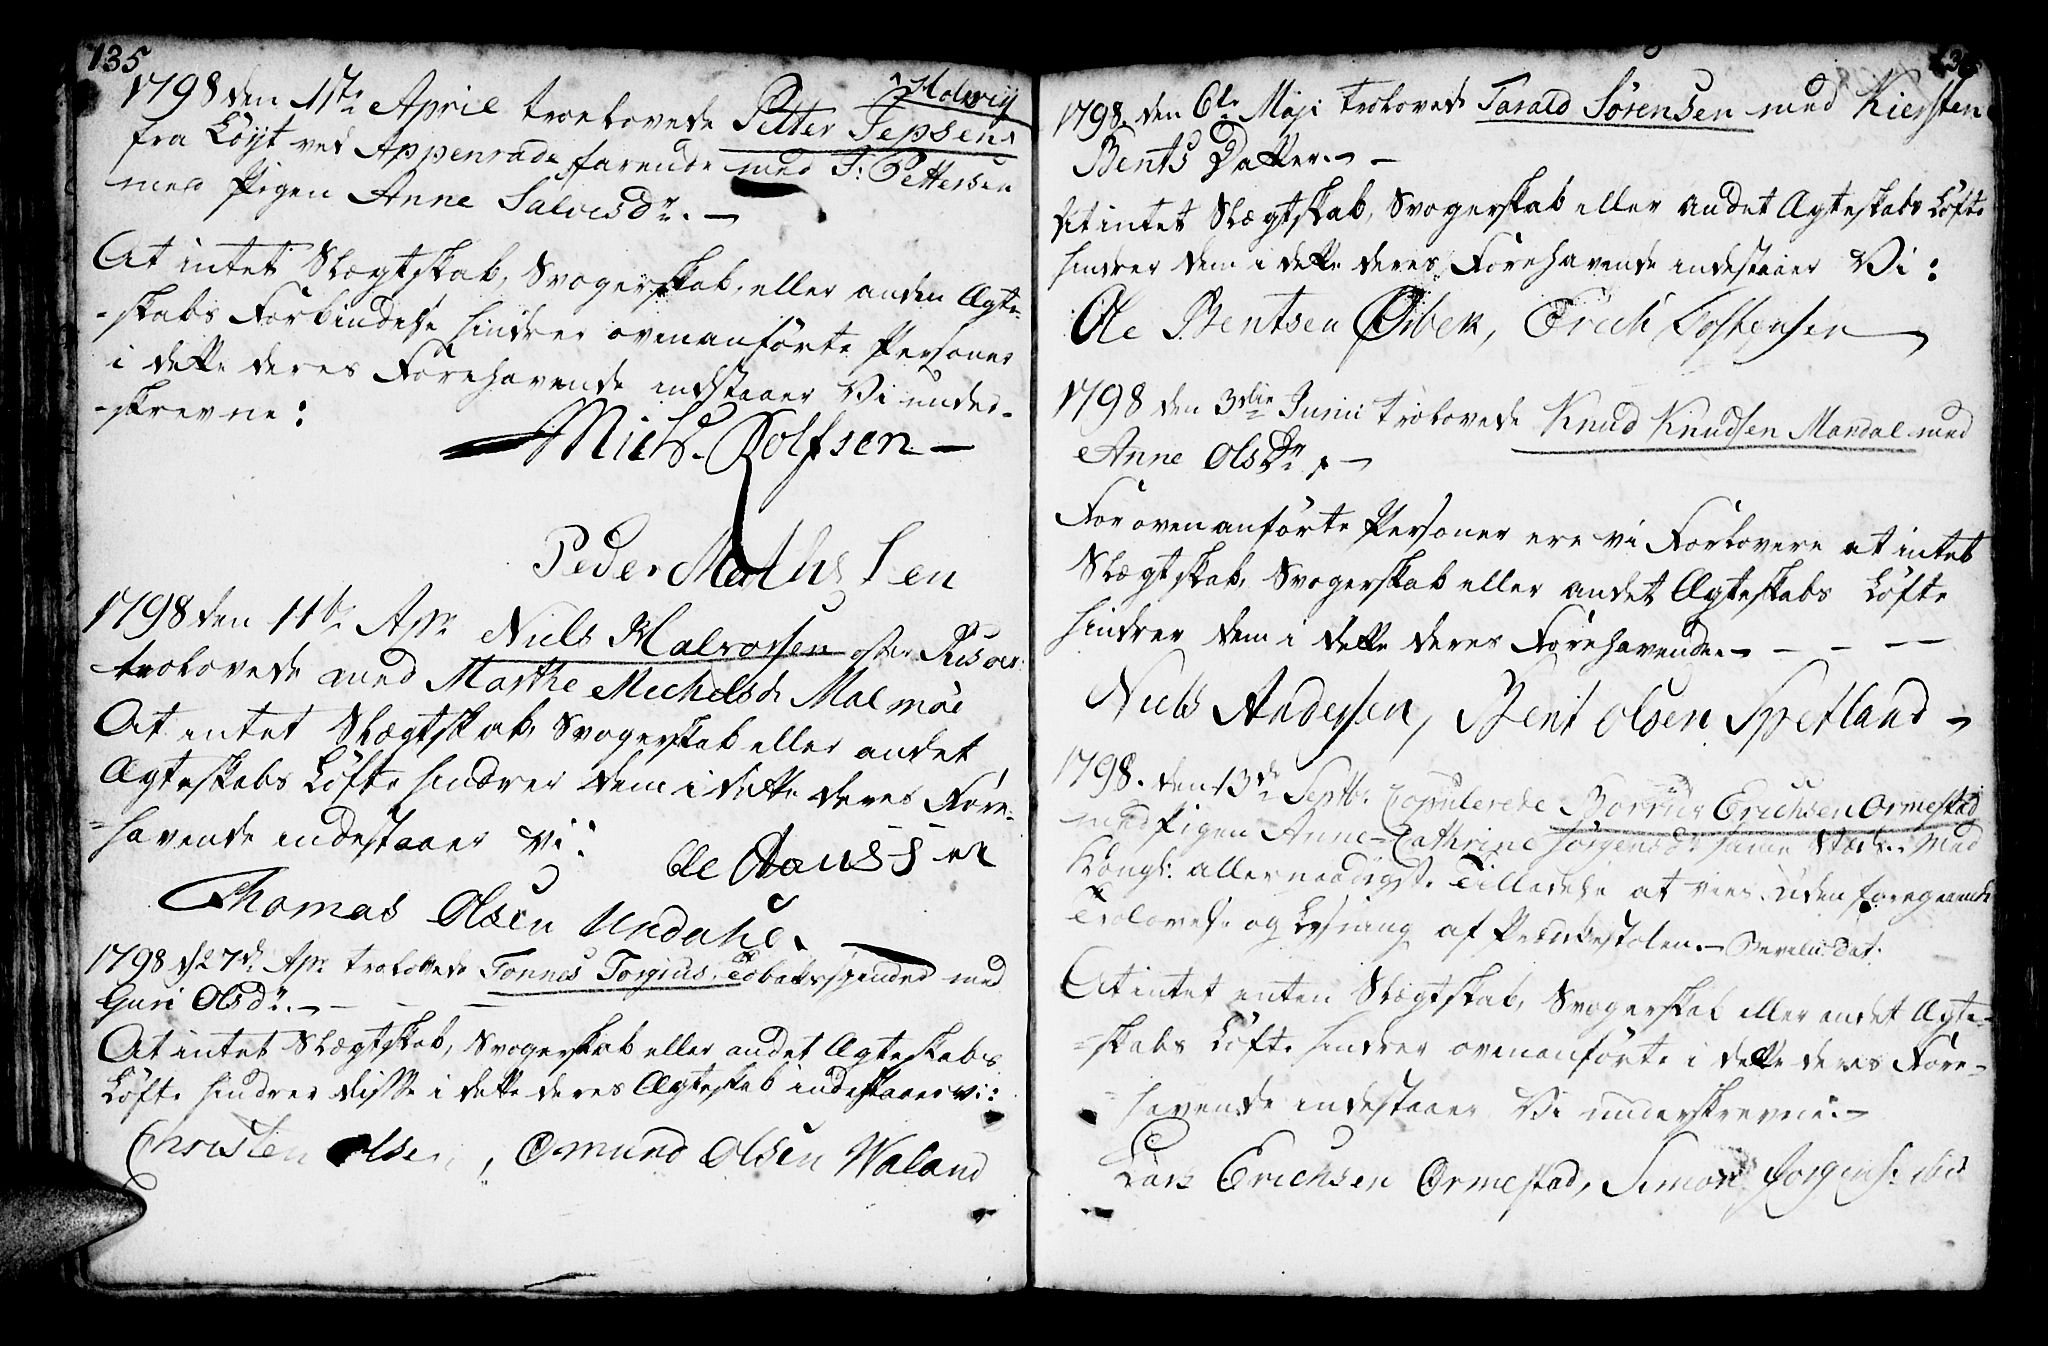 135
1798 den 1ste April troelovede Petter Jepsen Holvig
fra Löyt ved Appenrade farende med J: Pettersen
med Pigen Anne Salvesdr.
At intet Slægtskab, Svogerskab, eller anden Ægte-
-skabs Forbindelse hindrer ovenanförte Personer
i dette deres Forehavende indstaaer Vi under-
-skrevne:
Niels Rolfsen
Peder Mathssen
1798 den 11te Apr. Niels Halvorsen Öster Riisøer
trolovede med Marthe Michelsdr Malmöe
At intet Slægtskab, Svogerskab eller andet
Ægteskabs Löfte hindrer dem i dette deres Fore-
=havende indestaaer Vi:
Ole
Thomas Olsen Undahl.
1798 d 27de Apr. trolovede Tönnes Torgius. med
Guri Olsdr.
At intet Slægtskab, Svogerskab eller andet Ægteskabs
Löfte hindrer disse i dette deres Ægteskab indestaaer vi:
Christen Olsen, Omund Olsen Waland
136
1798. den 6te Maji trolovede Tarald Sörensen med Kiersten
Bents Datter.
At intet Slægtskab, Svogerskab eller andet Ægteskabs Löfte
hindrer dem i dette deres Forehavende indestaaer Vi:
Ole Bentsen Öibek, Erich Tostensen
1798 den 3die Junii trolovede Knud Knudsen Mandal med
Anne OlsDr.
For ovenanförte Personer ere vi Forlovere at intet
Slægtskab, Svogerskab eller andet Ægteskabs Löfte
hindrer dem i dette deres Forehavende.
Niels Andersen, Bent Olsen Spetland
1798. den 13de Septbr. Copulerede Borrius Erichsen Ormestad
med Pigen Anne-Cathrine Jörgensdr. samme Stæd. Med
Kongl: allernaadigst. Tilladelse at vies uden foregaaende
Trolovels. og Lysning af Prædikestolen.
At intet enten Slægtskab, Svogerskab eller andet Ægte-
=skabs Löfte hindrer ovenanförte i dette deres Fore=
=havende indestaaer Vi underskrevne.
Lars Erichsen Ormestad, Simon Jörgens: ibid